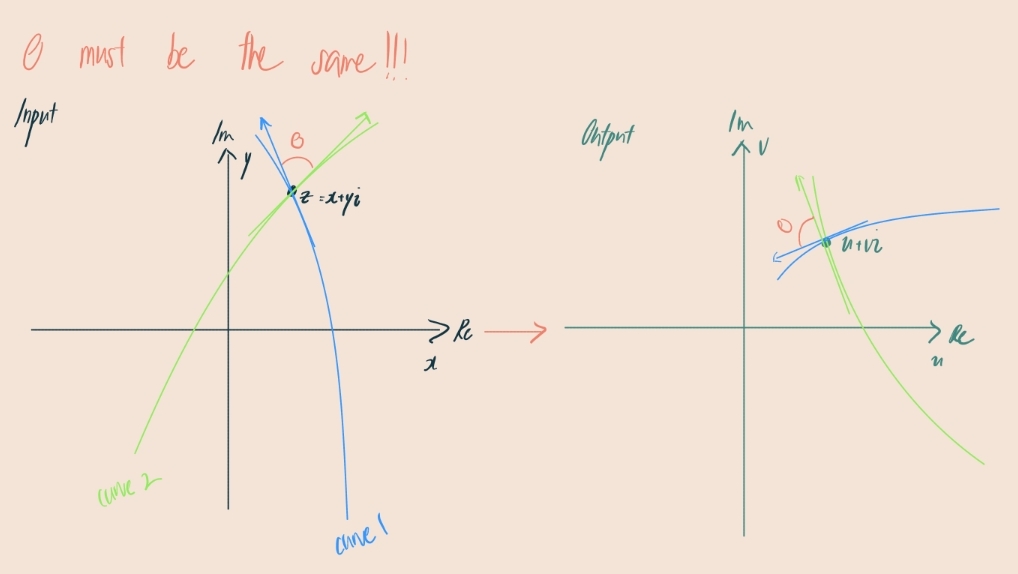 θ must be the same!!!
Input
Im
y
θ
z = x+yi
Re
x
curve 2
curve 1
Output
Im
v
θ
u+vi
Re
u